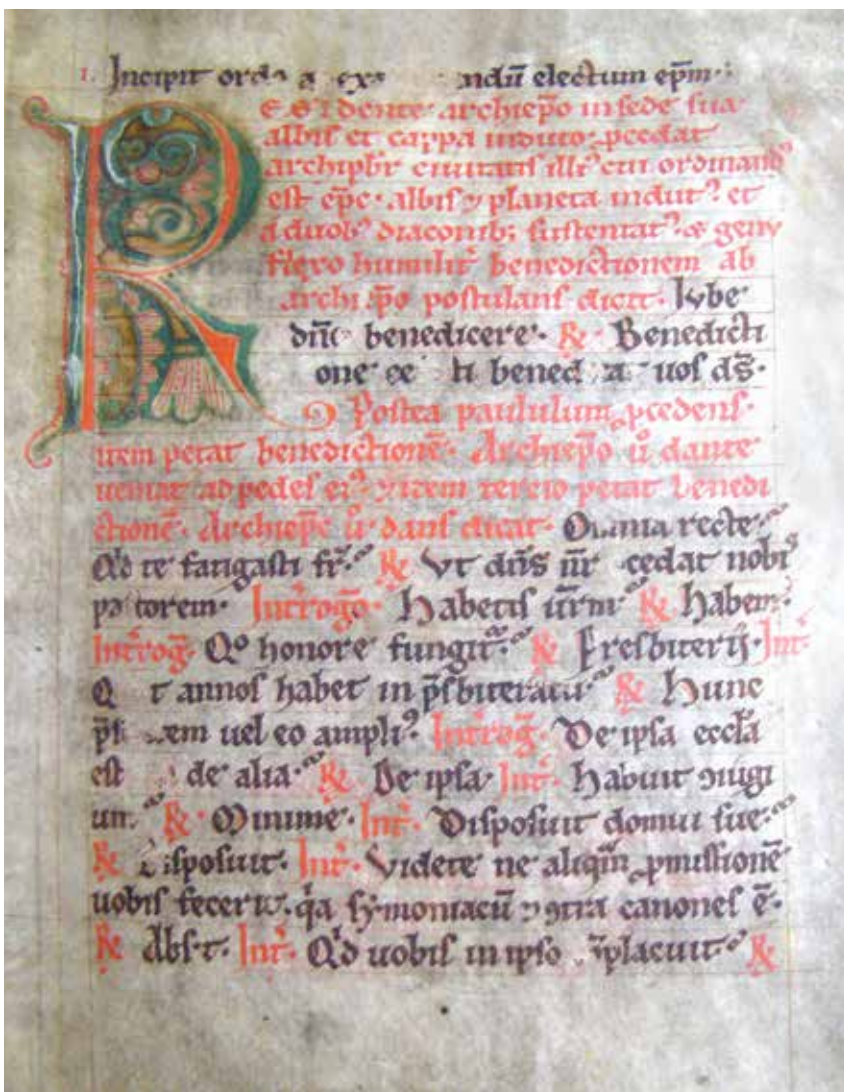 1. Incipit ordo a exa ndū electum ep̄m
RESIdente archiep̄o in sede sua
albis et cappa induto. p̱cedat
archip̄br ciuitatis illiꝰ cui ordinandꝰ
est ep̄c. albis ⁊ planeta indutꝰ et
a duobꝰ diaconib; sustentatꝰ. & genu
flexo humilit̓ benedictionem ab
archiep̄o postulans dicit. Iube
dn̄e benedicere. ℟ Benedicti
one ce ti bened a uos ds̄.
Postea paululum p̱cedens.
item petat benedictionē. Archiep̄o ū dante
ueniat ad pedes eiꝰ. ⁊ item tercio petat benedi
ctionē. Archiep̄c ū dans dicat.
Qd̓ te fatigasti fr̄. ℟ Vt dn̄s nr̄ cedat nobisꝰ
pastorem. Int̓rogō. Habetis ur̄m ℟ habem.
Int̓roḡ. Qͦ honore fungit. ℟ Presbiterij. Int̓.
Q t annos habet in p̄sbiteratu. ℟ Hunc
p̄s em uel eo ampliꝰ. Int̓roḡ. De ipsa eccl̄a
est de alia. ℟ De ipsa. Int̓. Habuit ꝯiugi
um. ℟ Minime. Int̓. Disposuit domui sue.
℟ Disposuit. Int̓. Videte ne aliqm̄ p̱missionē
uobis fecerit. qa symoniacū ⁊ ꝯtra canones ē.
℟ Absit. Int̓. Qd̓ uobis in ipso ꝯplacuit. ℟